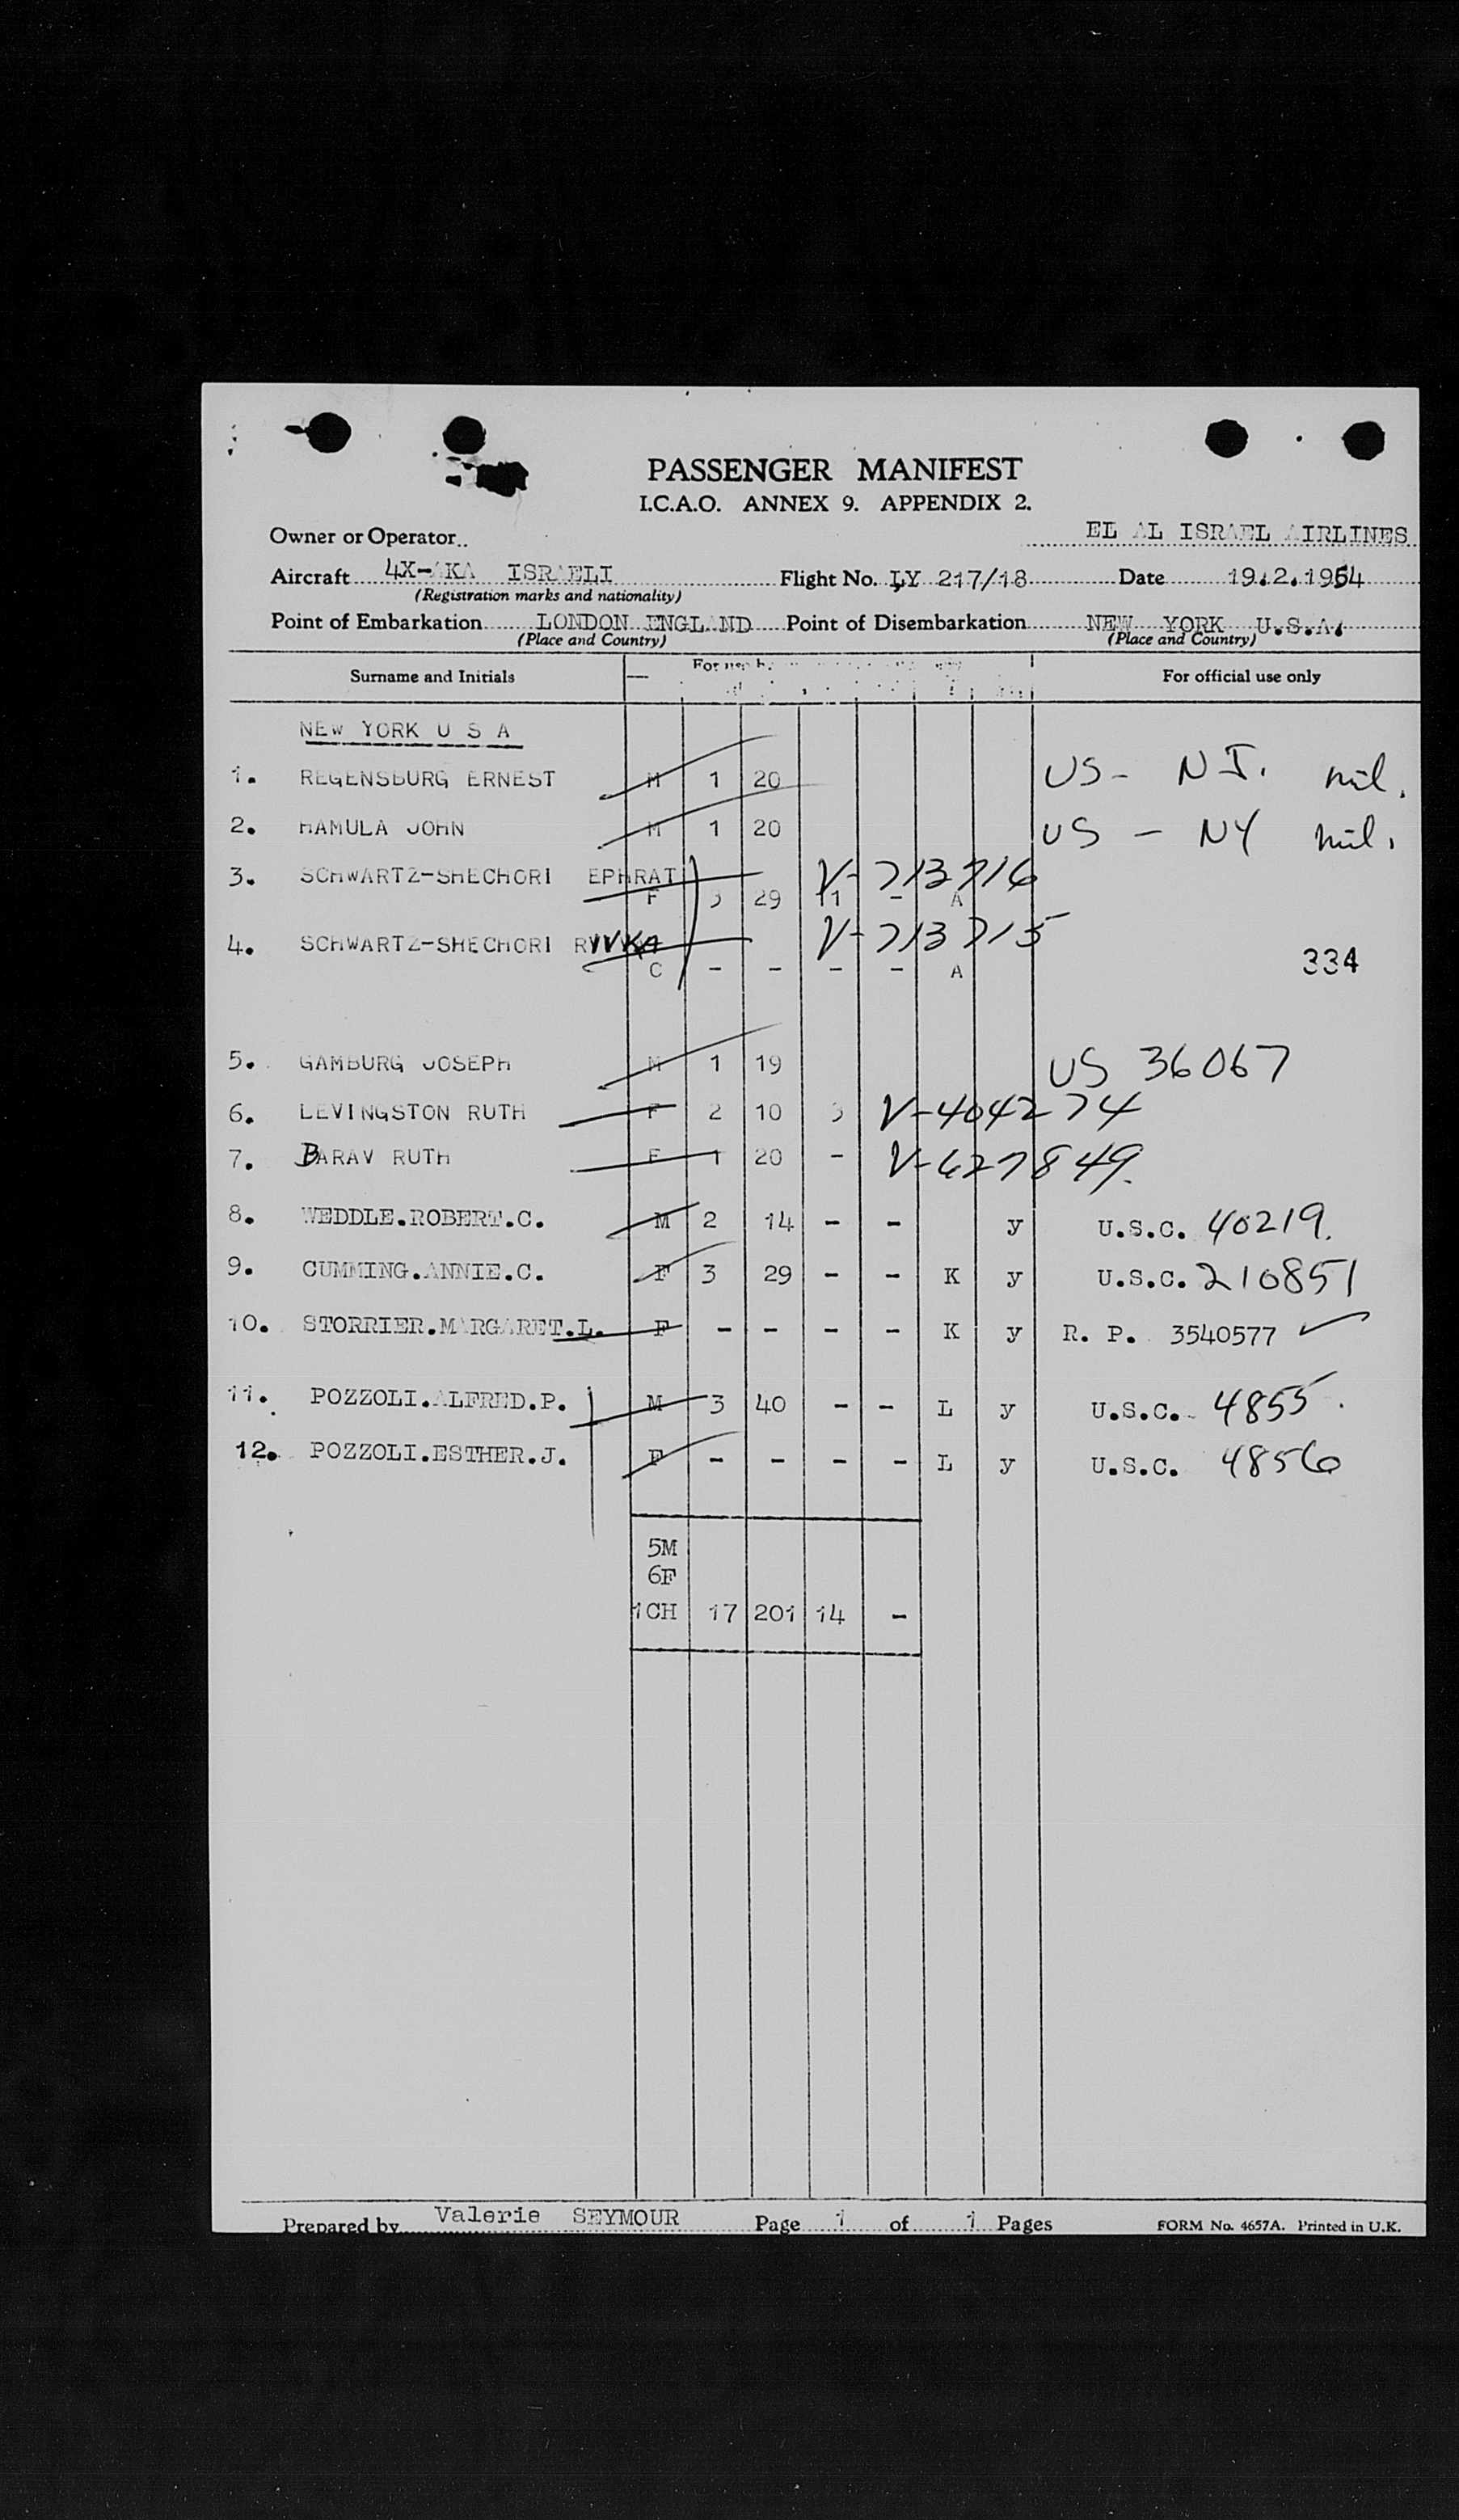 PASSENGER MANIFEST
I.C.A.O. ANNEX 9. APPENDIX 2.
Owner or Operator.. EL AL ISRAEL AIRLINES
Aircraft 4X-AKA ISRAELI Flight No. LY 217/18 Date 19.2.1954
(Registration marks and nationality)
Point of Embarkation LONDON ENGLAND Point of Disembarkation NEW YORK U.S.A.
(Place and Country) (Place and Country)
Surname and Initials For use For official use only
NEW YORK U S A
1. REGENSBURG ERNEST M 1 20 US- NJ. nil.
2. HAMULA JOHN M 1 20 US - NY nil.
3. SCHWARTZ-SHECHORI EPHRAT V-713716
F 3 29 11 - A
4. SCHWARTZ-SHECHORI RIVKA V-713715
C - - - - A 334
5. GAMBURG JOSEPH M 1 19 US 36067
6. LEVINGSTON RUTH F 2 10 3 V-404274
7. BARAV RUTH F 1 20 - V-627849.
8. WEDDLE.ROBERT.C. M 2 14 - - y U.S.C. 40219.
9. CUMMING.ANNIE.C. F 3 29 - - K y U.S.C. 210851
10. STORRIER.MARGARET.L. F - - - - K y R. P. 3540577
11. POZZOLI.ALFRED.P. M 3 40 - - L y U.S.C. 4855.
12. POZZOLI.ESTHER.J. F - - - - L y U.S.C. 4856
5M
6F
1CH 17 201 14 -
Prepared by Valerie SEYMOUR Page 1 of 1 Pages FORM No. 4657A. Printed in U.K.